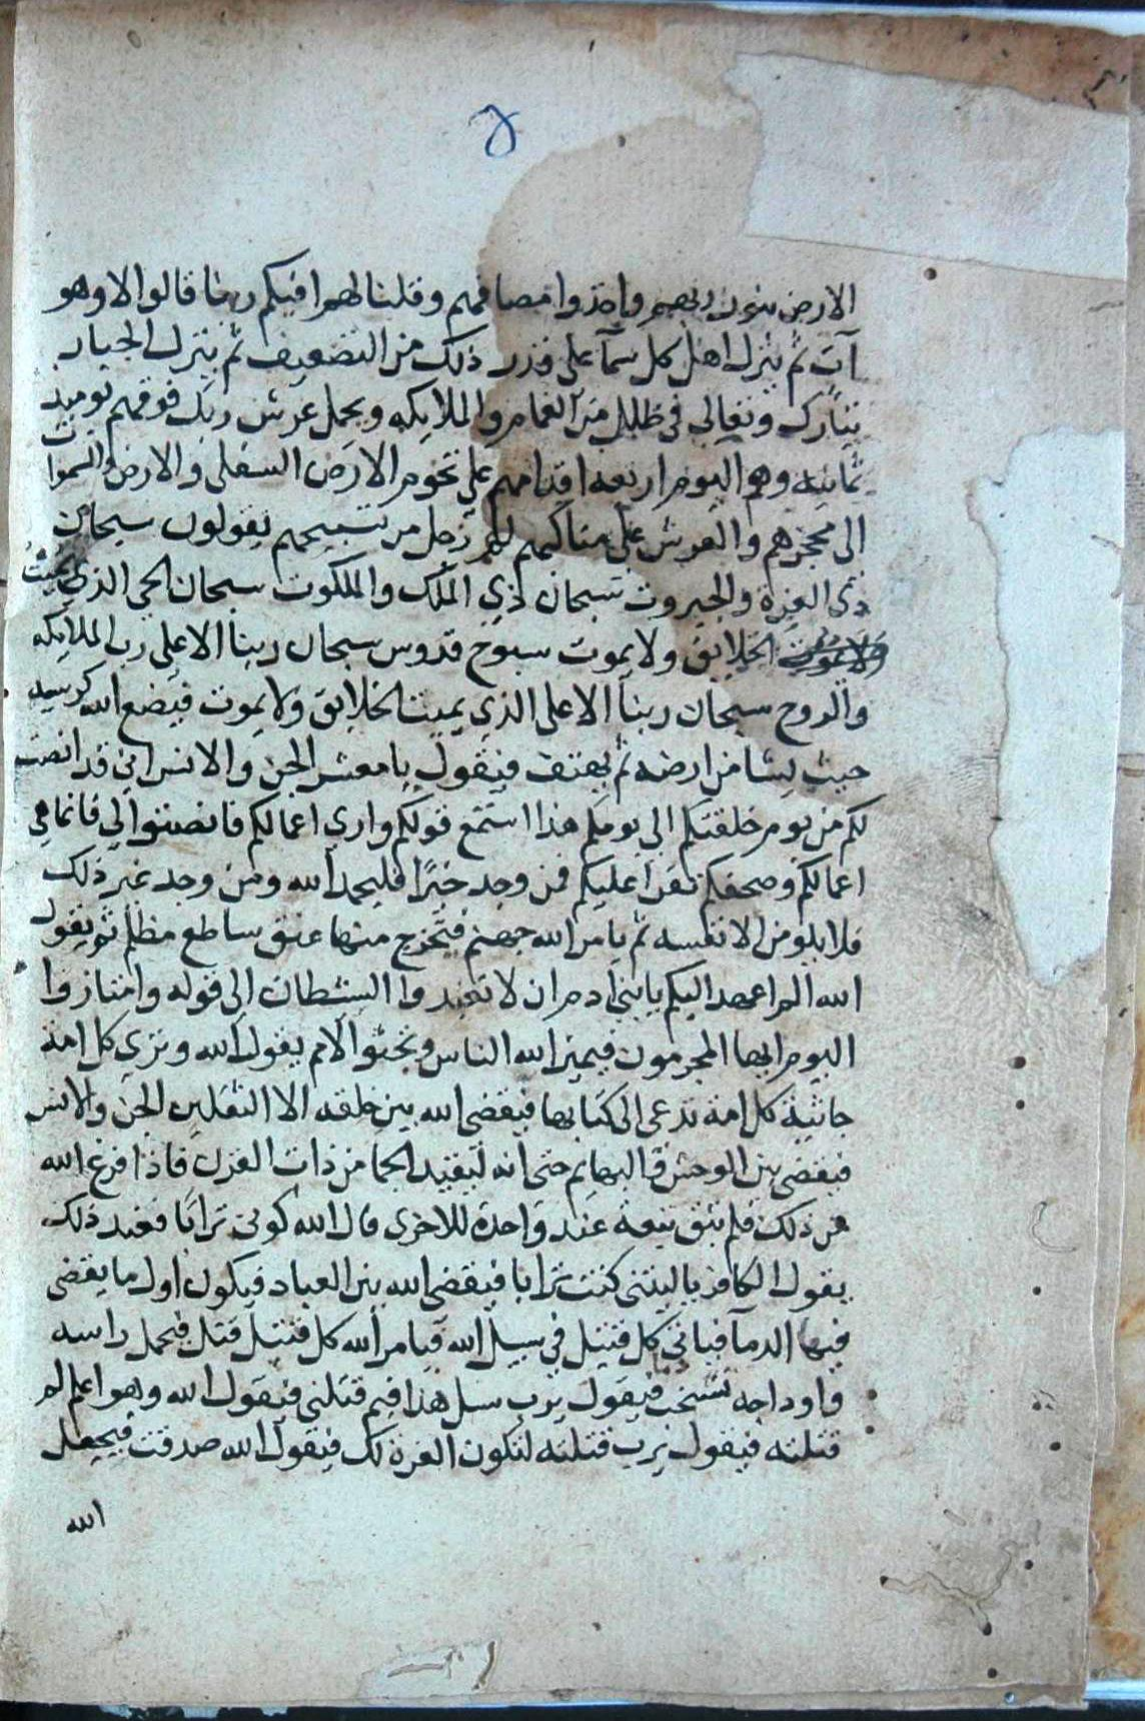 ٤
الارض بنور ربهم واخذوا مصافهم وقلنا لهم افيكم ربنا قالوا لا وهو
آت ثم ينزل اهل كل سمآ على قدر ذلك من التضعيف ثم ينزل الجبار
تبارك وتعالى في ظلل من الغمام والملايكه ويحمل عرش ربك فوقهم يوميذ
ثمانيه وهم اليوم اربعه اقدامهم على تخوم الارض السفلى والارض والسموات
الى حجزهم والعرش على مناكبهم لهم زجل من تسبيحهم يقولون سبحان
ذي العزة والجبروت سبحان ذي الملك والملكوت سبحان الحي الذي يميت
الخلايق ولا يموت سبوح قدوس سبحان ربنا الاعلى رب الملايكه
والروح سبحان ربنا الاعلى الذي يميت الخلايق ولا يموت فيضع الله كرسيه
حيث يشا من ارضه ثم يهتف فيقول يا معشر الجن والانس اني قد انصت
لكم من يوم خلقتكم الى يومكم هذا استمع قولكم وارى اعمالكم فانصتوا الي فانما هي
اعمالكم وصحفكم تقرا عليكم فمن وجد خيرا فليحمد الله ومن وجد غير ذلك
فلا يلومن الا نفسه ثم يامر الله جهنم فتخرج منها عنق ساطع مظلم ثم يقول
الله الم اعهد اليكم يا بني ادم ان لا تعبدوا الشيطان الى قوله وامتازوا
اليوم ايها المجرمون فيميز الله الناس وتجثو الامم يقول الله وترى كل امة
جاثية كل امة تدعى الى كتابها فيقضي الله بين خلقه الا الثقلين الجن والانس
فيقضى بين الوحش والبهايم حتى انه ليقيد الجما من ذات القرن فاذا فرغ الله
من ذلك فلم تبق تبعة عند واحدة للاخرى قال الله كوني ترابا فعند ذلك
يقول الكافر يا ليتني كنت ترابا فيقضي الله بين العباد فيكون اول ما يقضى
فيها الدمآ فياتي كل قتيل في سبيل الله فيامر الله كل قتيل قتل فيحمل راسه
واوداجه تشخب فيقول يرب سل هذا فيم قتلني فيقول الله وهو اعلم لم
قتلته فيقول يرب قتلته لتكون العزة لك فيقول الله صدقت فيجعل
الله